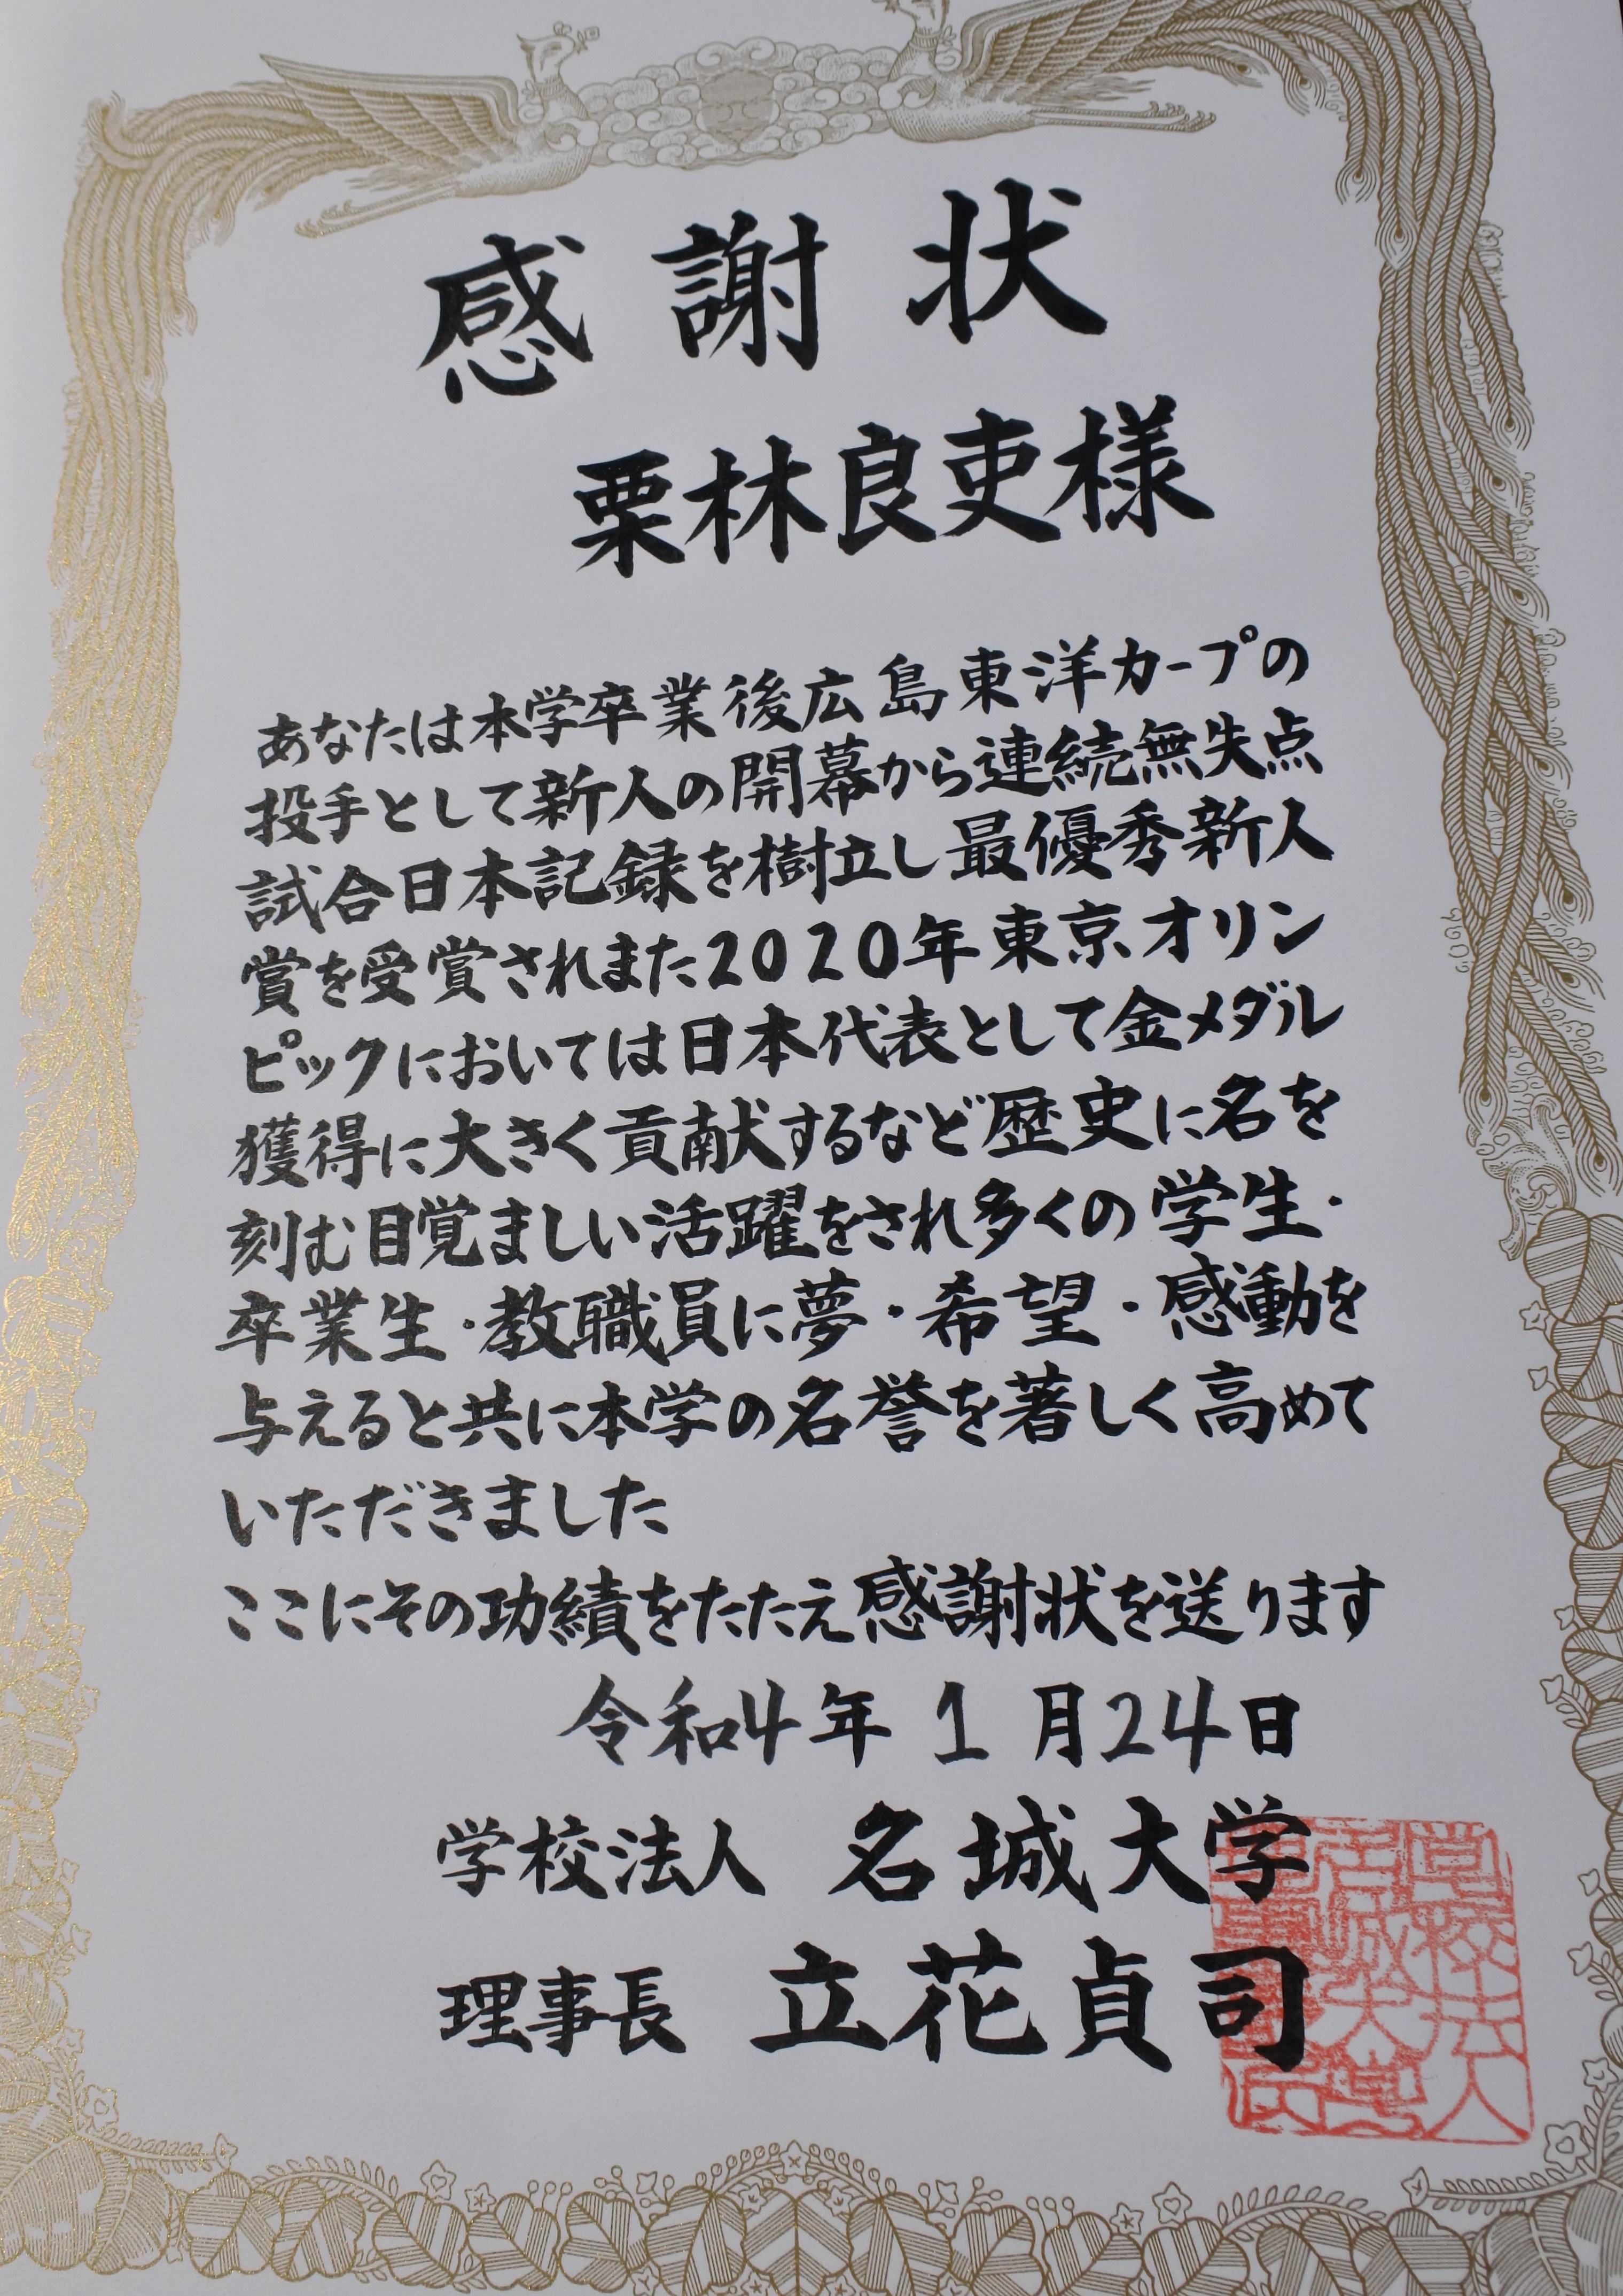 感謝状
栗林良吏様
あなたは本学卒業後広島東洋カープの
投手として新人の開幕から連続無失点
試合日本記録を樹立し最優秀新人
賞を受賞されまた2020年東京オリン
ピックにおいては日本代表として金メダル
獲得に大きく貢献するなど歴史に名を
刻む目覚ましい活躍をされ多くの学生・
卒業生・教職員に夢・希望・感動を
与えると共に本学の名誉を著しく高めて
いただきました
ここにその功績をたたえ感謝状を送ります
令和4年1月24日
学校法人 名城大学
理事長 立花貞司
學校法人
名城大學